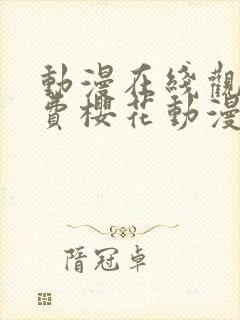 動漫在綫觀
費櫻花動漫
隋冠卓